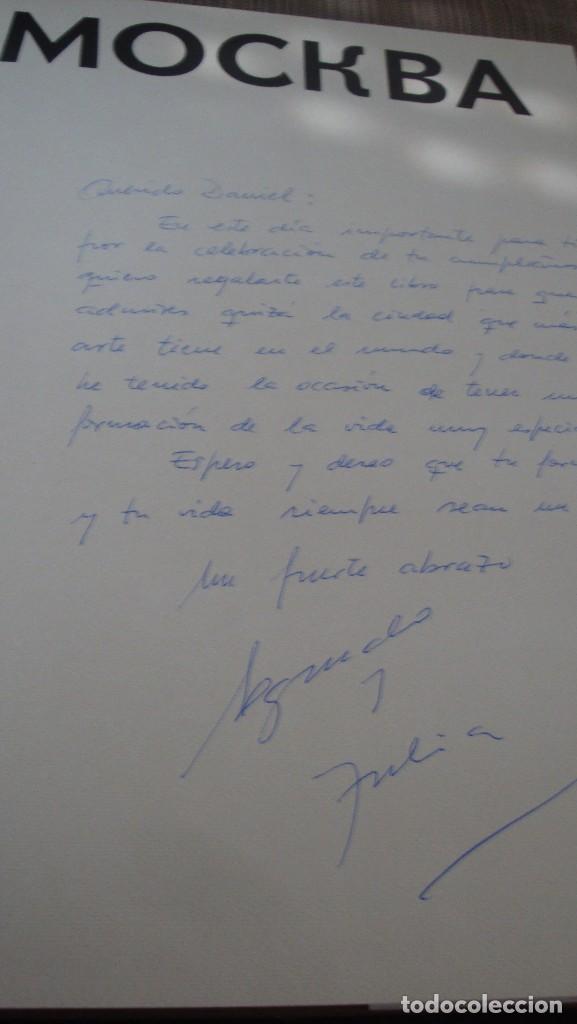 МОСКВА
Querido Daniel:
En este día importante para t
por la celebración de tu cumpleaños
quiero regalarte este libro para que
admires quizá la ciudad que más
arte tiene en el mundo y donde
he tenido la ocasión de tener un
formación de la vida muy especi
Espero y deseo que tu for
y tu vida siempre sean un
Un fuerte abrazo
y
Julia
todocoleccion